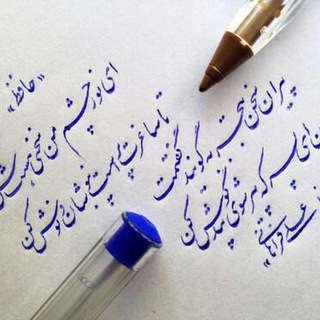 «حافظ»
ای نور چشم من سخنی هست
تا ساغرت پر است بنوشان و نوش کن
پیران سخن به تجربه گویند گفتمت
ای پسر که پیر شوی پند گوش کن